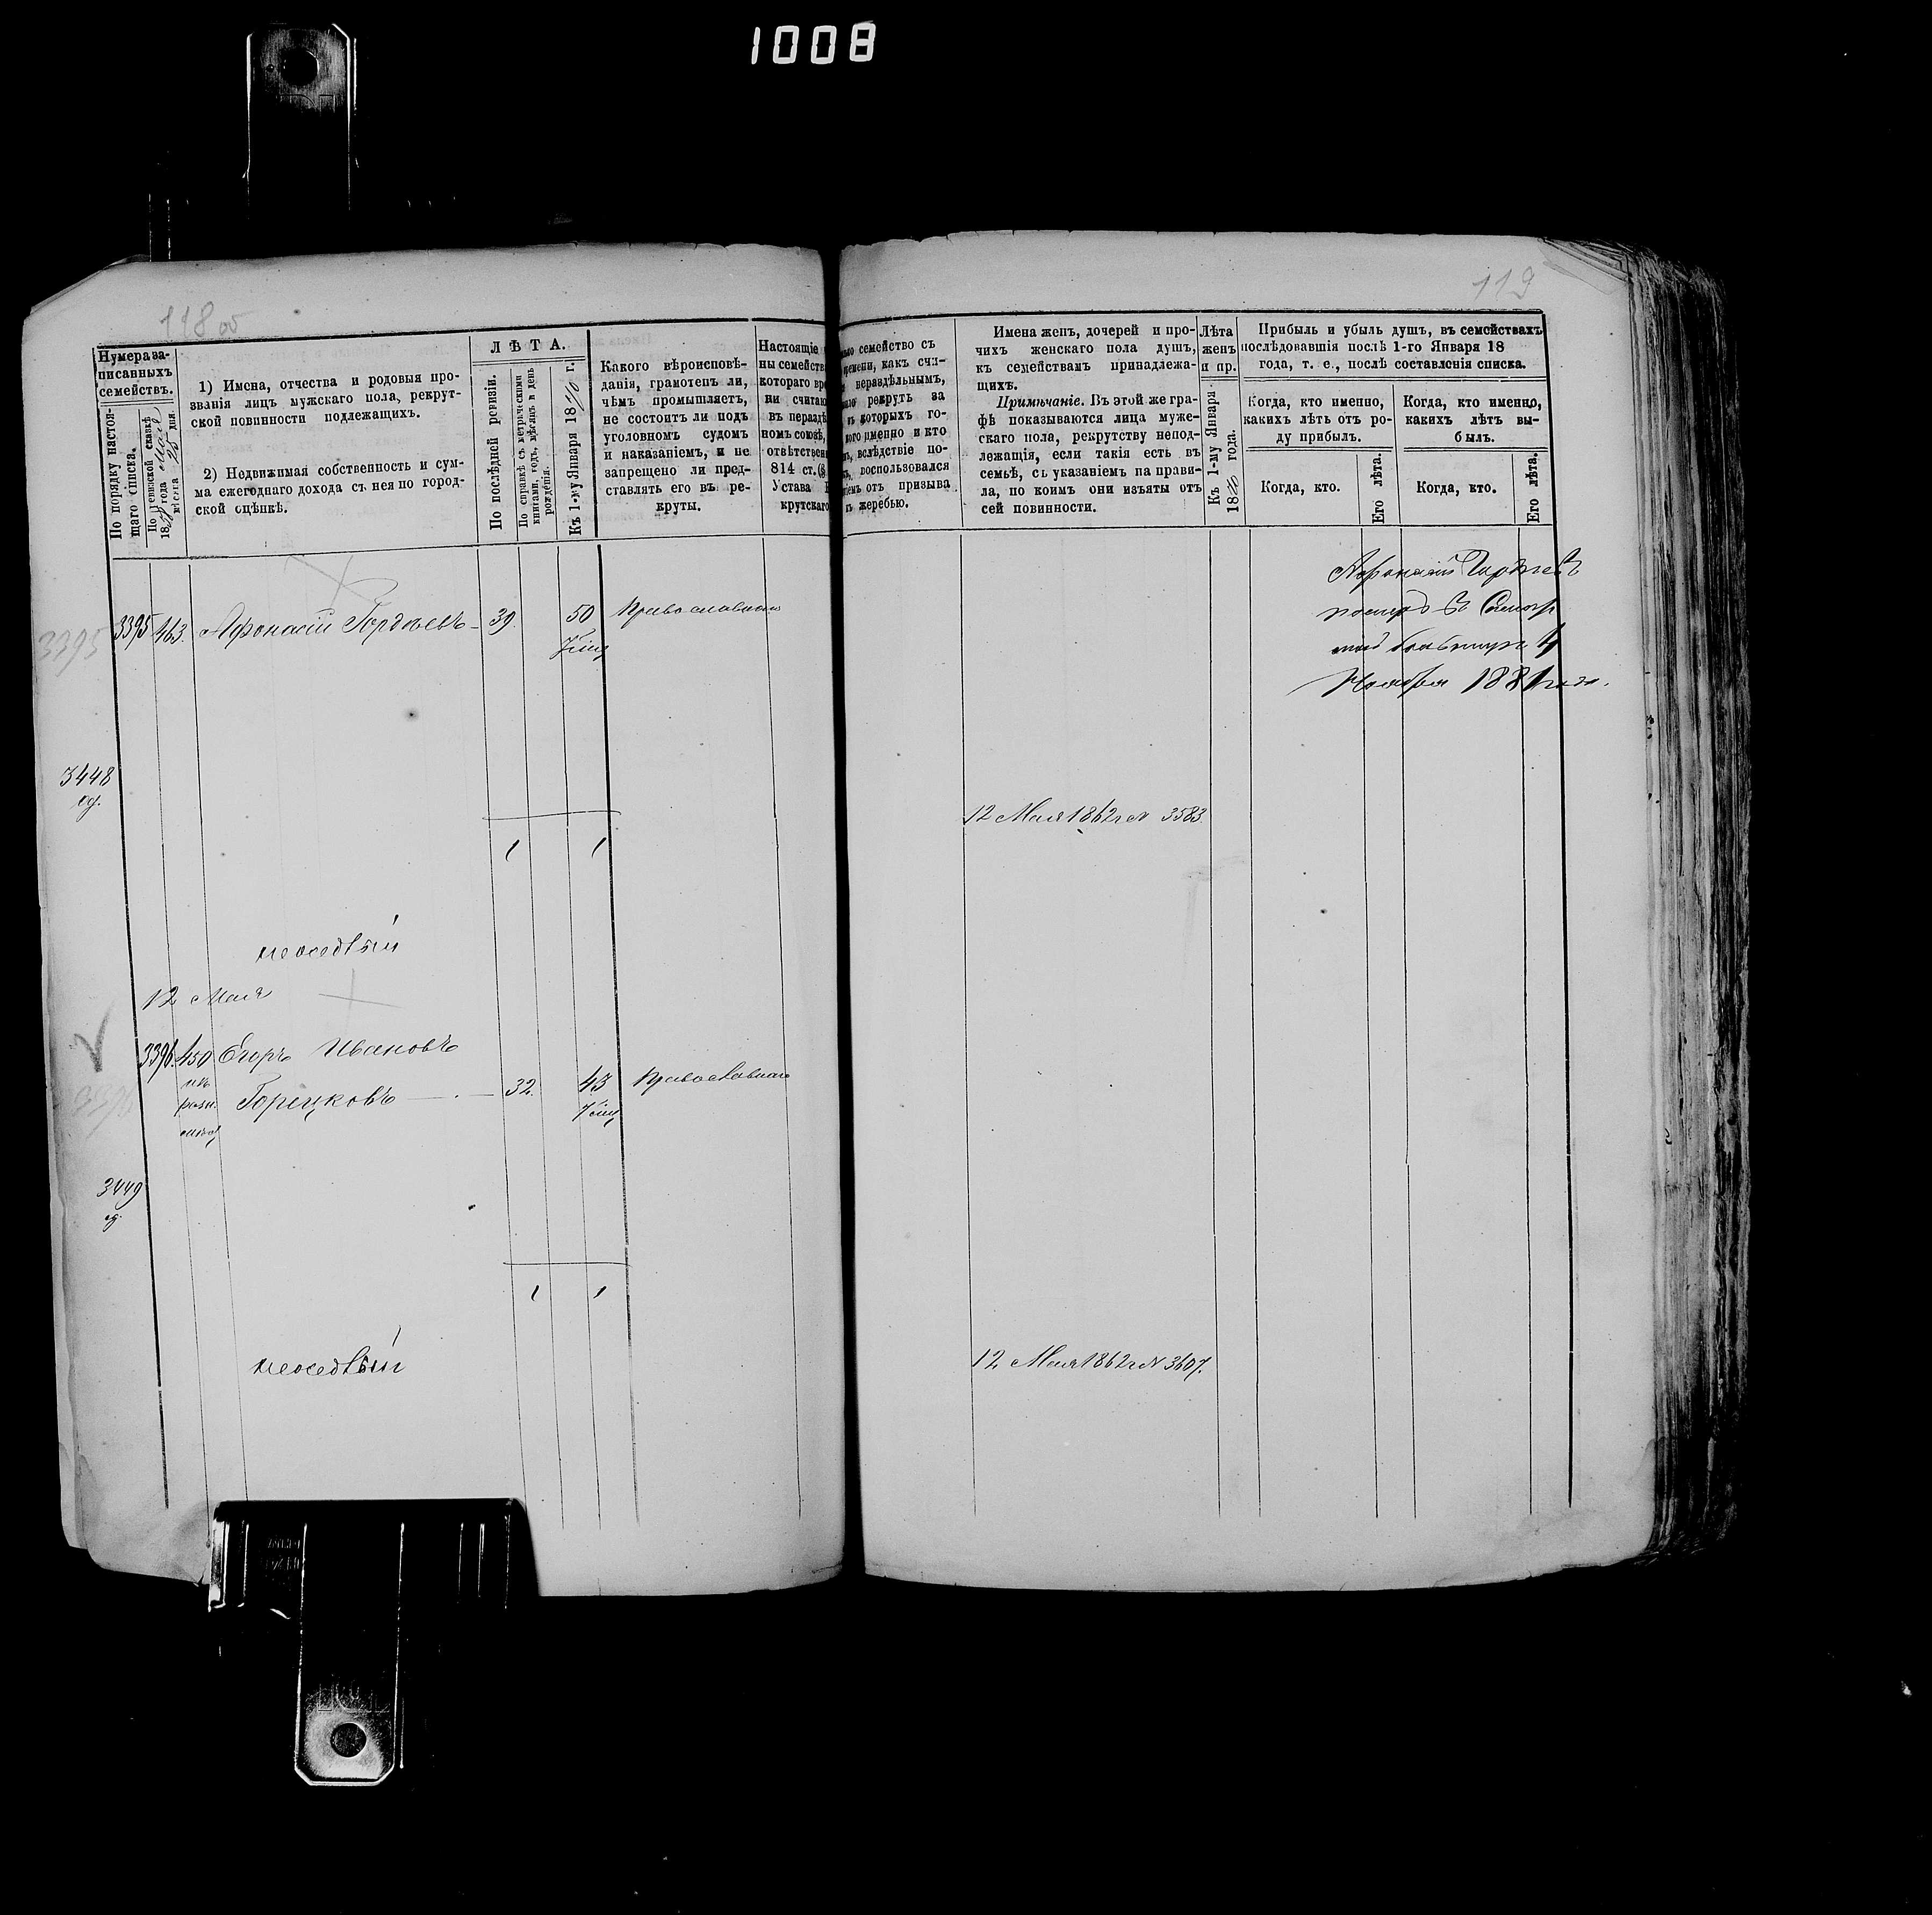 1008
118 об
119
Нумера записанныхъ семействъ.
По порядку настоящаго списка.
По ревизской сказкѣ 18 года Мая мѣсяца дня.
1) Имена, отчества и родовыя прозванія лицъ мужскаго пола, рекрутской повинности подлежащихъ.
2) Недвижимая собственность и сумма ежегоднаго дохода съ нея по городской оцѣнкѣ.
ЛѢТА.
По послѣдней ревизіи.
По справкѣ съ метрическими книгами, годъ, мѣсяцъ и день рожденія.
Къ 1-му Января 1870 г.
Какого вѣроисповѣ-
данія, грамотенъ ли,
чѣмъ промышляетъ,
не состоитъ ли подъ
уголовномъ судомъ
и наказаніемъ, и не
запрещено ли пред-
ставлять его въ ре-
круты.
Настоящіе
ны семейства
котораго вре
ни считаю
въ неразде
номъ союзѣ,
отвѣтствен
814 ст.
Устава
крутскаго
семейство съ
времени, какъ счи-
нераздѣльнымъ,
рекрутъ за
въ которыхъ го-
именно и кто
вслѣдствіе по-
воспользовался
отъ призыва
жеребью.
Имена женъ, дочерей и про-
чихъ женскаго пола душъ,
къ семействамъ принадлежа-
щихъ.
Примѣчаніе. Въ этой же гра-
фѣ показываются лица муже-
скаго пола, рекрутству непод-
лежащія, если такія есть въ
семьѣ, съ указаніемъ на прави-
ла, по коимъ они изъяты отъ
сей повинности.
Лѣта
женъ
и пр.
Къ 1-му Января 1870 года.
Прибыль и убыль душъ, въ семействахъ
послѣдовавшія послѣ 1-го Января 18
года, т. е., послѣ составленія списка.
Когда, кто именно,
какихъ лѣтъ отъ ро-
ду прибылъ.
Когда, кто именно,
какихъ лѣтъ вы-
былъ.
Когда, кто.
Его лѣта.
Когда, кто.
Его лѣта.
3395
3395 463. Афонасій Гордѣевъ 39. 50 Православнаго
Афонасий Гордѣевъ
Ноября 1881 года.
3448
од.
12 Мая 1862 г № 3583.
1 1
неосѣдлый
12 Мая
3396. 450 Егоръ Ивановъ
Горецковъ 32. 43 Православнаго
3396
3449
од.
1 1
неосѣдлый
12 Мая 1862 г № 3607.